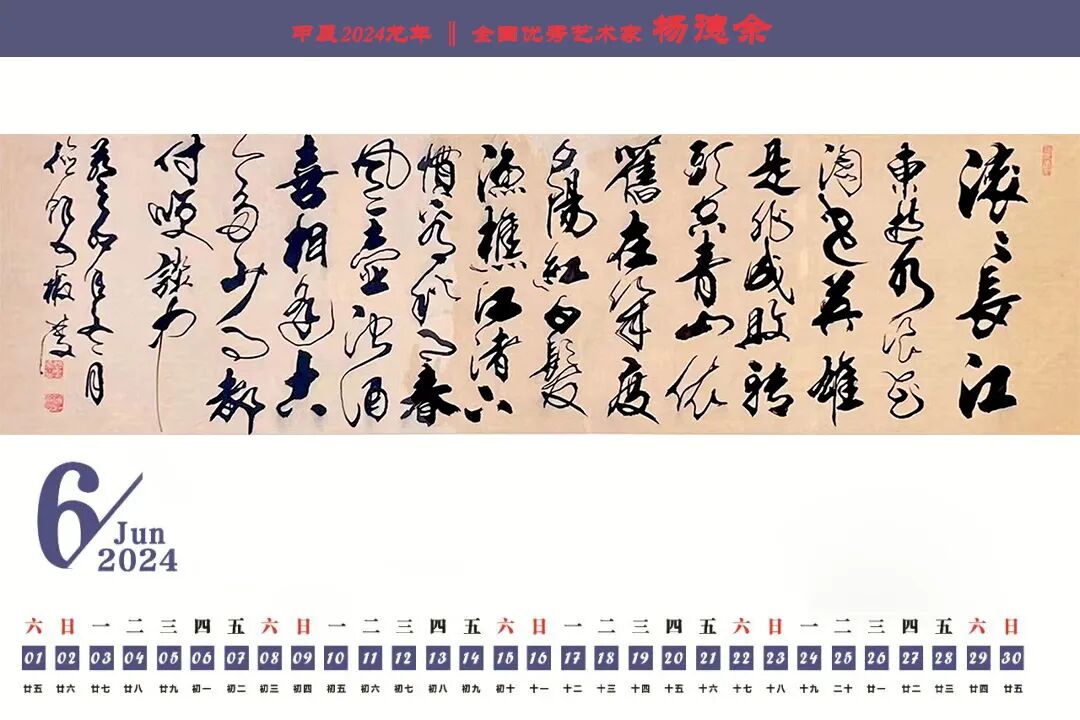 甲辰2024龙年 ‖ 全国优秀艺术家 杨德余
滚〻長江
東逝水浪花
淘盡英雄
是非成敗轉
頭空青山依
舊在幾度
夕陽紅白髮
漁樵江渚上
慣看秋月春
風一壺濁酒
喜相逢古
今多少事都
付咲談中
6
Jun
2024
六 日 一 二 三 四 五 六 日 一 二 三 四 五 六 日 一 二 三 四 五 六 日 一 二 三 四 五 六 日
01 02 03 04 05 06 07 08 09 10 11 12 13 14 15 16 17 18 19 20 21 22 23 24 25 26 27 28 29 30
廿五 廿六 廿七 廿八 廿九 初一 初二 初三 初四 初五 初六 初七 初八 初九 初十 十一 十二 十三 十四 十五 十六 十七 十八 十九 二十 廿一 廿二 廿三 廿四 廿五